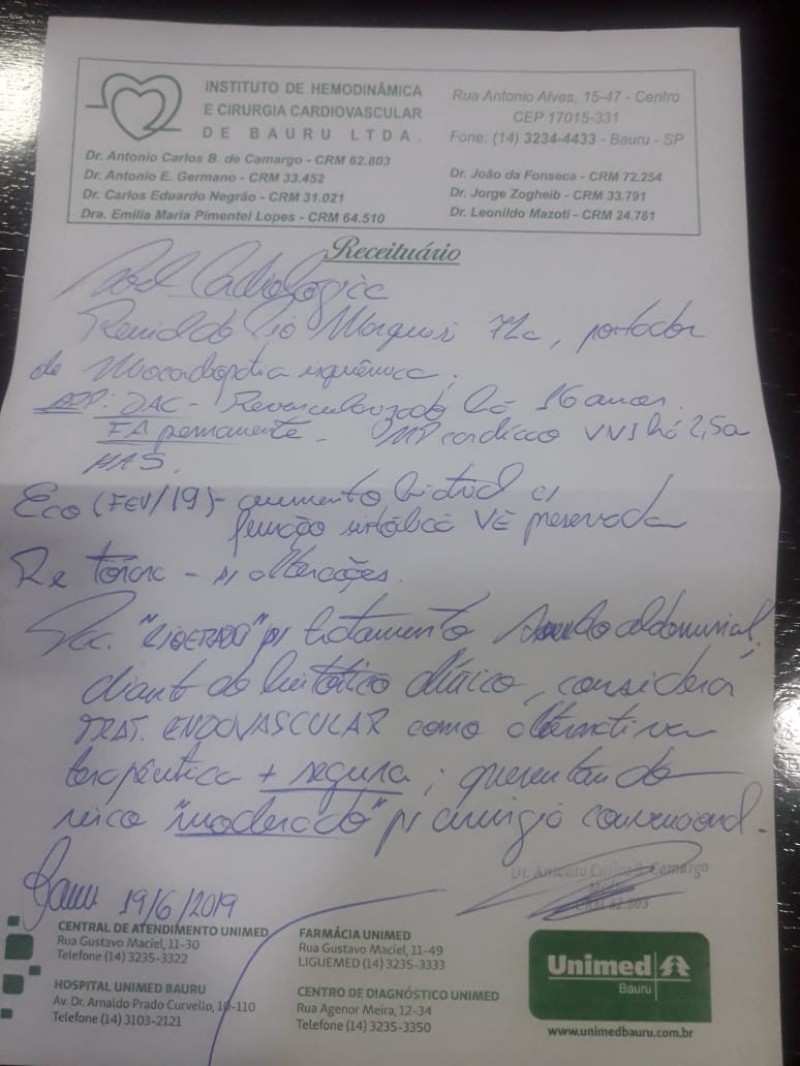 INSTITUTO DE HEMODINÂMICA
E CIRURGIA CARDIOVASCULAR
DE BAURU LTDA.
Rua Antonio Alves, 15-47 - Centro
CEP 17015-331
Fone: (14) 3234-4433 - Bauru - SP
Dr. Antonio Carlos B. de Camargo - CRM 62.803
Dr. Antonio E. Germano - CRM 33.452
Dr. Carlos Eduardo Negrão - CRM 31.021
Dra. Emilia Maria Pimentel Lopes - CRM 64.510
Dr. João da Fonseca - CRM 72.254
Dr. Jorge Zogheib - CRM 33.791
Dr. Leonildo Mazoti - CRM 24.781
Receituário
Cardiologica
Marques 72a, portador
de isquêmica.
APP: DAC - Revascularizado há 16 anos.
FA permanente - MP cardíaco VVI há 2,5a
HAS.
Eco (FEV/19) - aumento biatrial c/
função sistólica VE preservada
Rx tórax - s/ alterações.
Pac. "LIBERADO" p/ tratamento abdominal,
diante do clínico, considerar
TRAT. ENDOVASCULAR como alternativa
terapêutica + segura;
risco "moderado" p/ cirurgia convencional.
Bauru 19/6/2019
Dr. Antonio Carlos B. Camargo
Médico
CRM 62.803
CENTRAL DE ATENDIMENTO UNIMED
Rua Gustavo Maciel, 11-30
Telefone (14) 3235-3322
HOSPITAL UNIMED BAURU
Av. Dr. Arnaldo Prado Curvello, 10-110
Telefone (14) 3103-2121
FARMÁCIA UNIMED
Rua Gustavo Maciel, 11-49
LIGUEMED (14) 3235-3333
CENTRO DE DIAGNÓSTICO UNIMED
Rua Agenor Meira, 12-34
Telefone (14) 3235-3350
Unimed
Bauru
www.unimedbauru.com.br